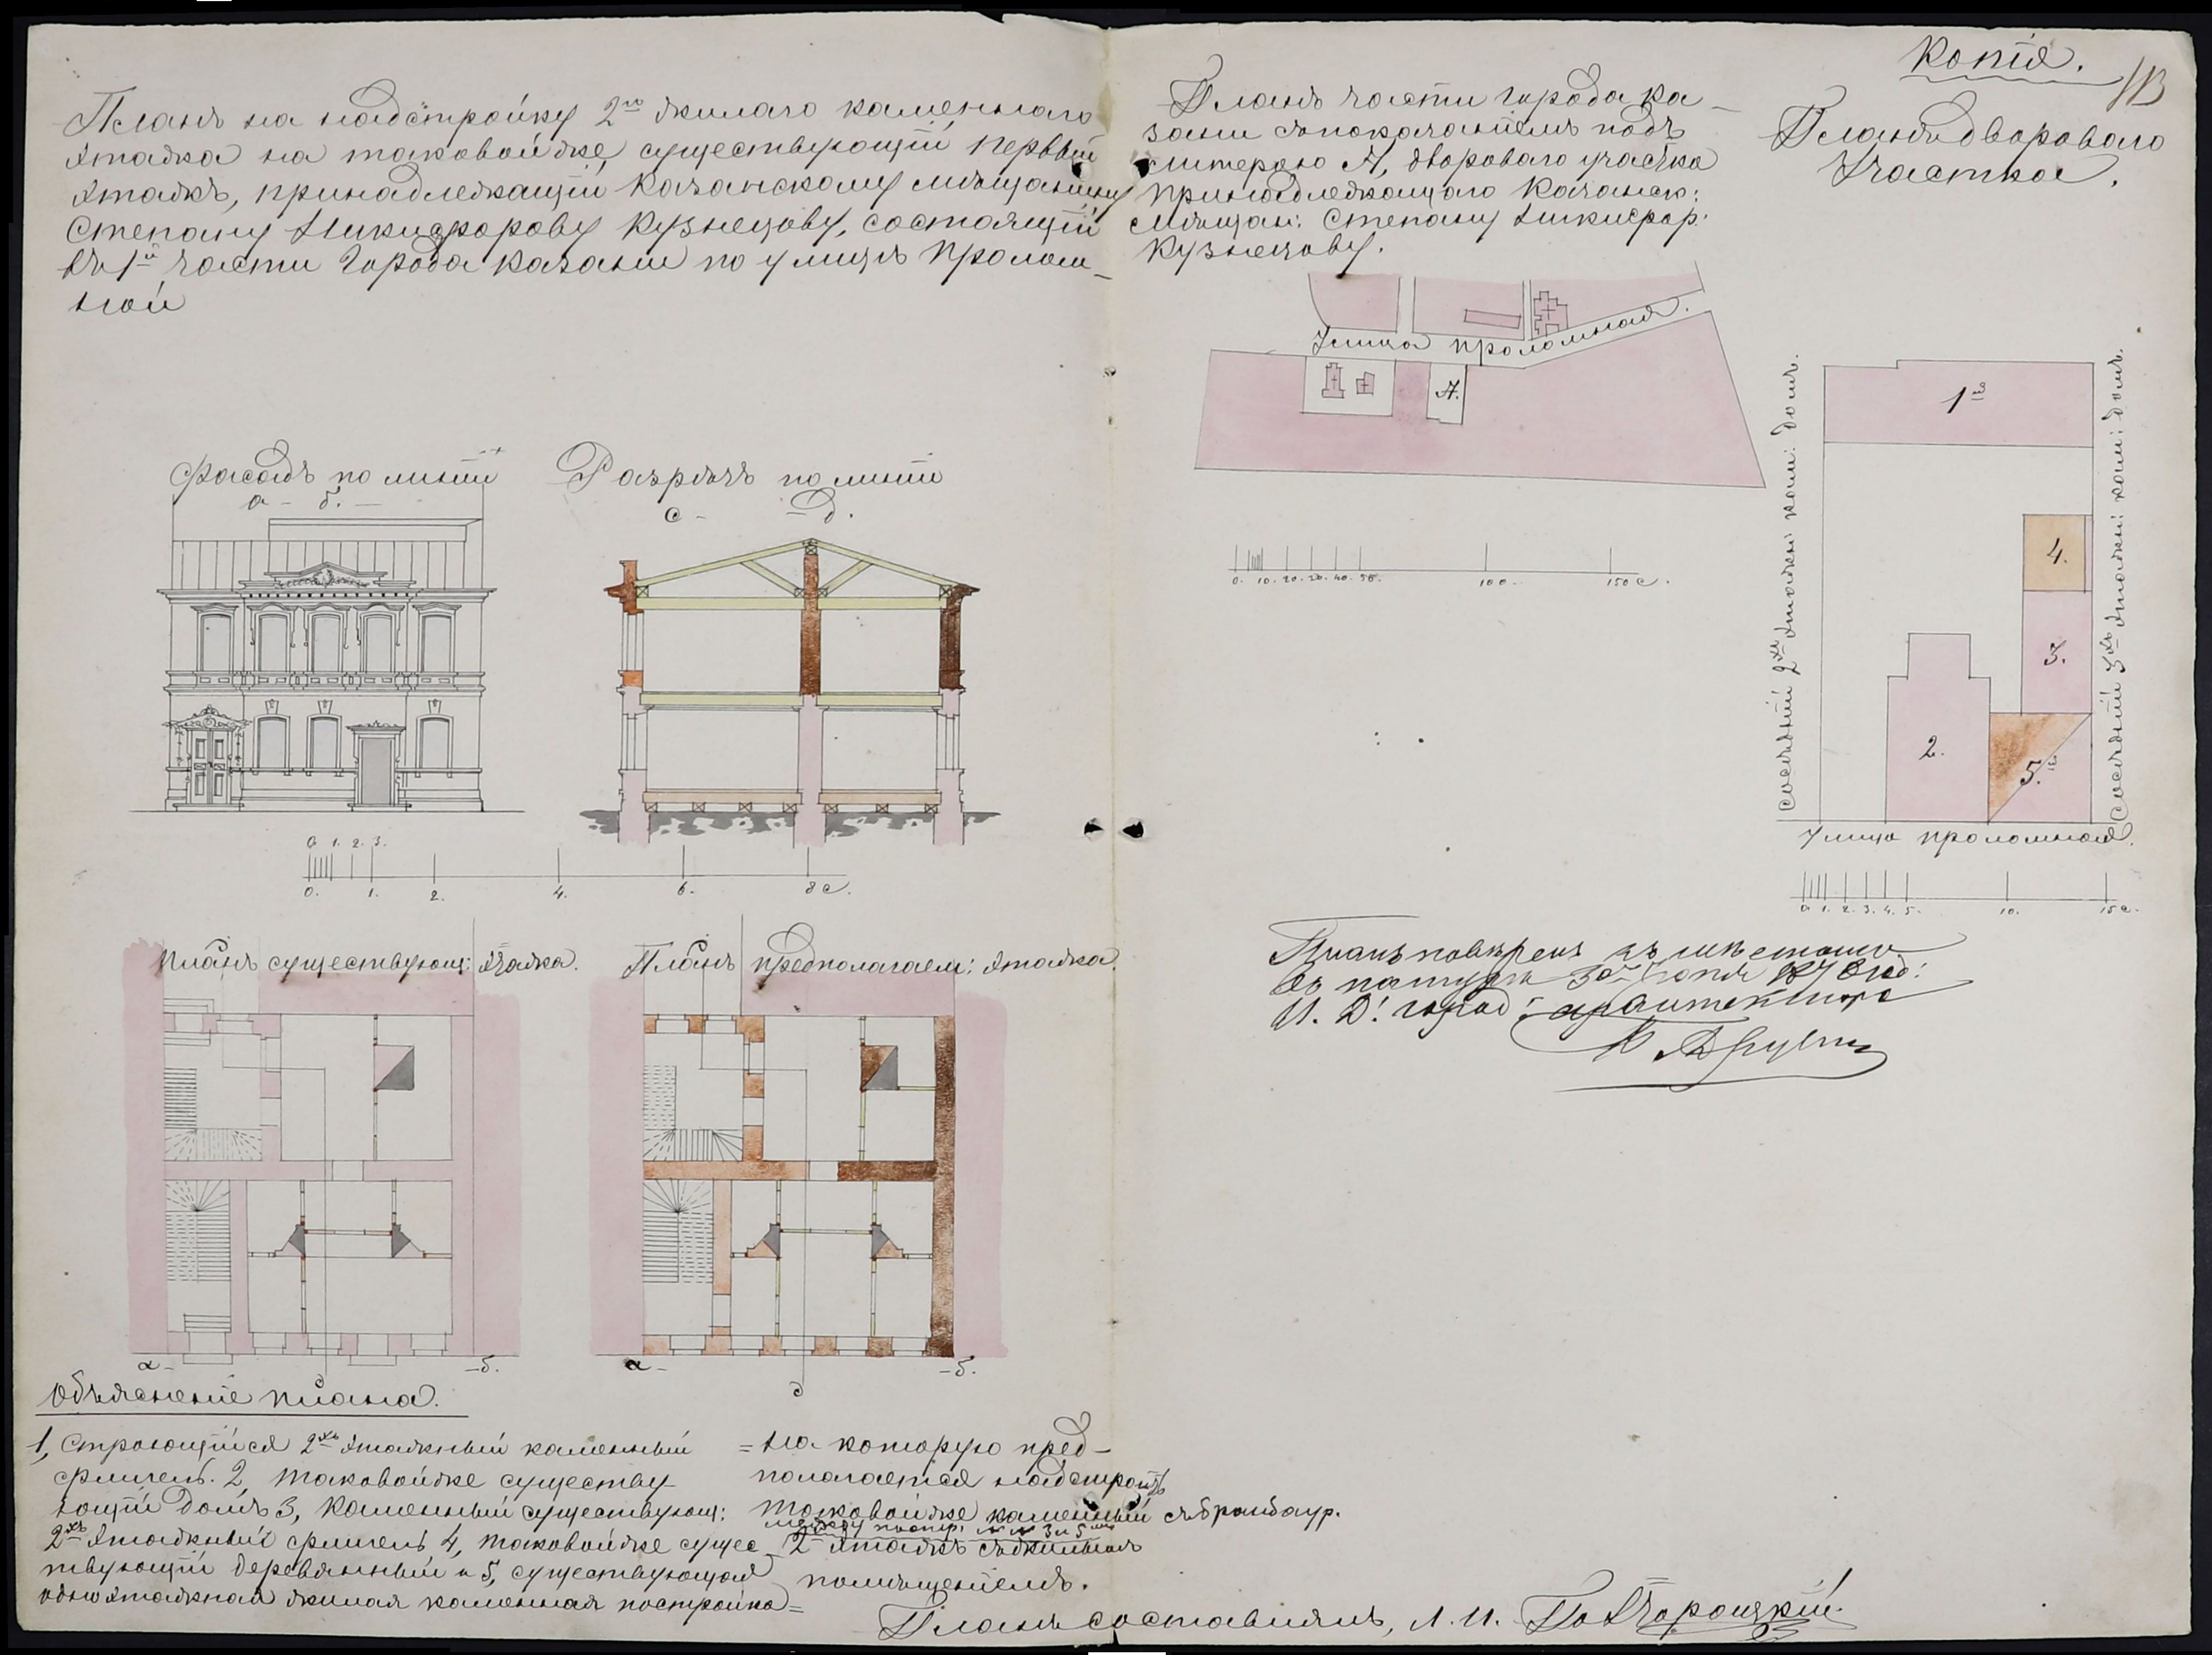 Копія.
113
Планъ на надстройку 2го жилаго каменнаго
этажа на таковой же существующій первый
этажъ, принадлежащій казанскому мѣщанину
Степану Никифорову Кузнецову, состоящій
въ 1й части города Казани по улицѣ Пролом-
ной
Планъ части города Ка-
зани съ показаніемъ подъ
литерою А, двороваго участка
принадлежащаго казанск:
мѣщан: Степану Никифор:
Кузнецову.
Планъ двороваго
участка.
Улица проломная.
А.
0. 10. 20. 30. 40. 50. 100. 150 с.
сосѣдній 2хъ этажн: кам: домъ.
сосѣдній 3хъ этажн: кам: домъ.
1й
4.
3.
2.
5.й
Улица проломная.
0 1. 2. 3. 4. 5. 10. 15 с.
Фасадъ по линіи
а - б.
Разрѣзъ по линіи
с - д.
0 1. 2. 3.
0. 1. 2. 4. 6. 8 с.
Планъ существующ: этажа.
Планъ предполагаем: этажа.
а - - б.
а - - б.
д
Планъ повѣренъ съ мѣстомъ
въ натурѣ 30го
И. Д. город: архитектора
Объясненіе плана.
1, строющійся 2хъ этажный каменный
флигель. 2, таковой же существу-
ющій домъ 3, каменный существующ:
2хъ этажный флигель 4, таковой же сущес-
твующій деревянный и 5, существующая
одноэтажная жилая каменная постройка =
= на которую пред-
полагается надстроить
таковой же каменный съ брандмаур.
между постр: №№ 3 и 5
2й этажъ съ жилымъ
помѣщеніемъ.
Планъ составлялъ, Л. И.